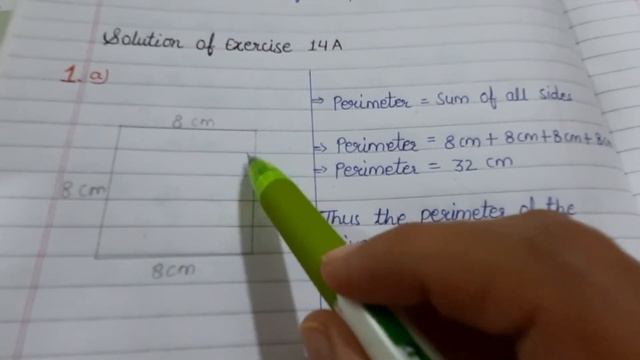 Solution of Exercise 14A
1. a)
8 cm
8 cm
8 cm
⇒ Perimeter = Sum of all sides
⇒ Perimeter = 8 cm + 8 cm + 8 cm + 8 cm
⇒ Perimeter = 32 cm
Thus the perimeter of the